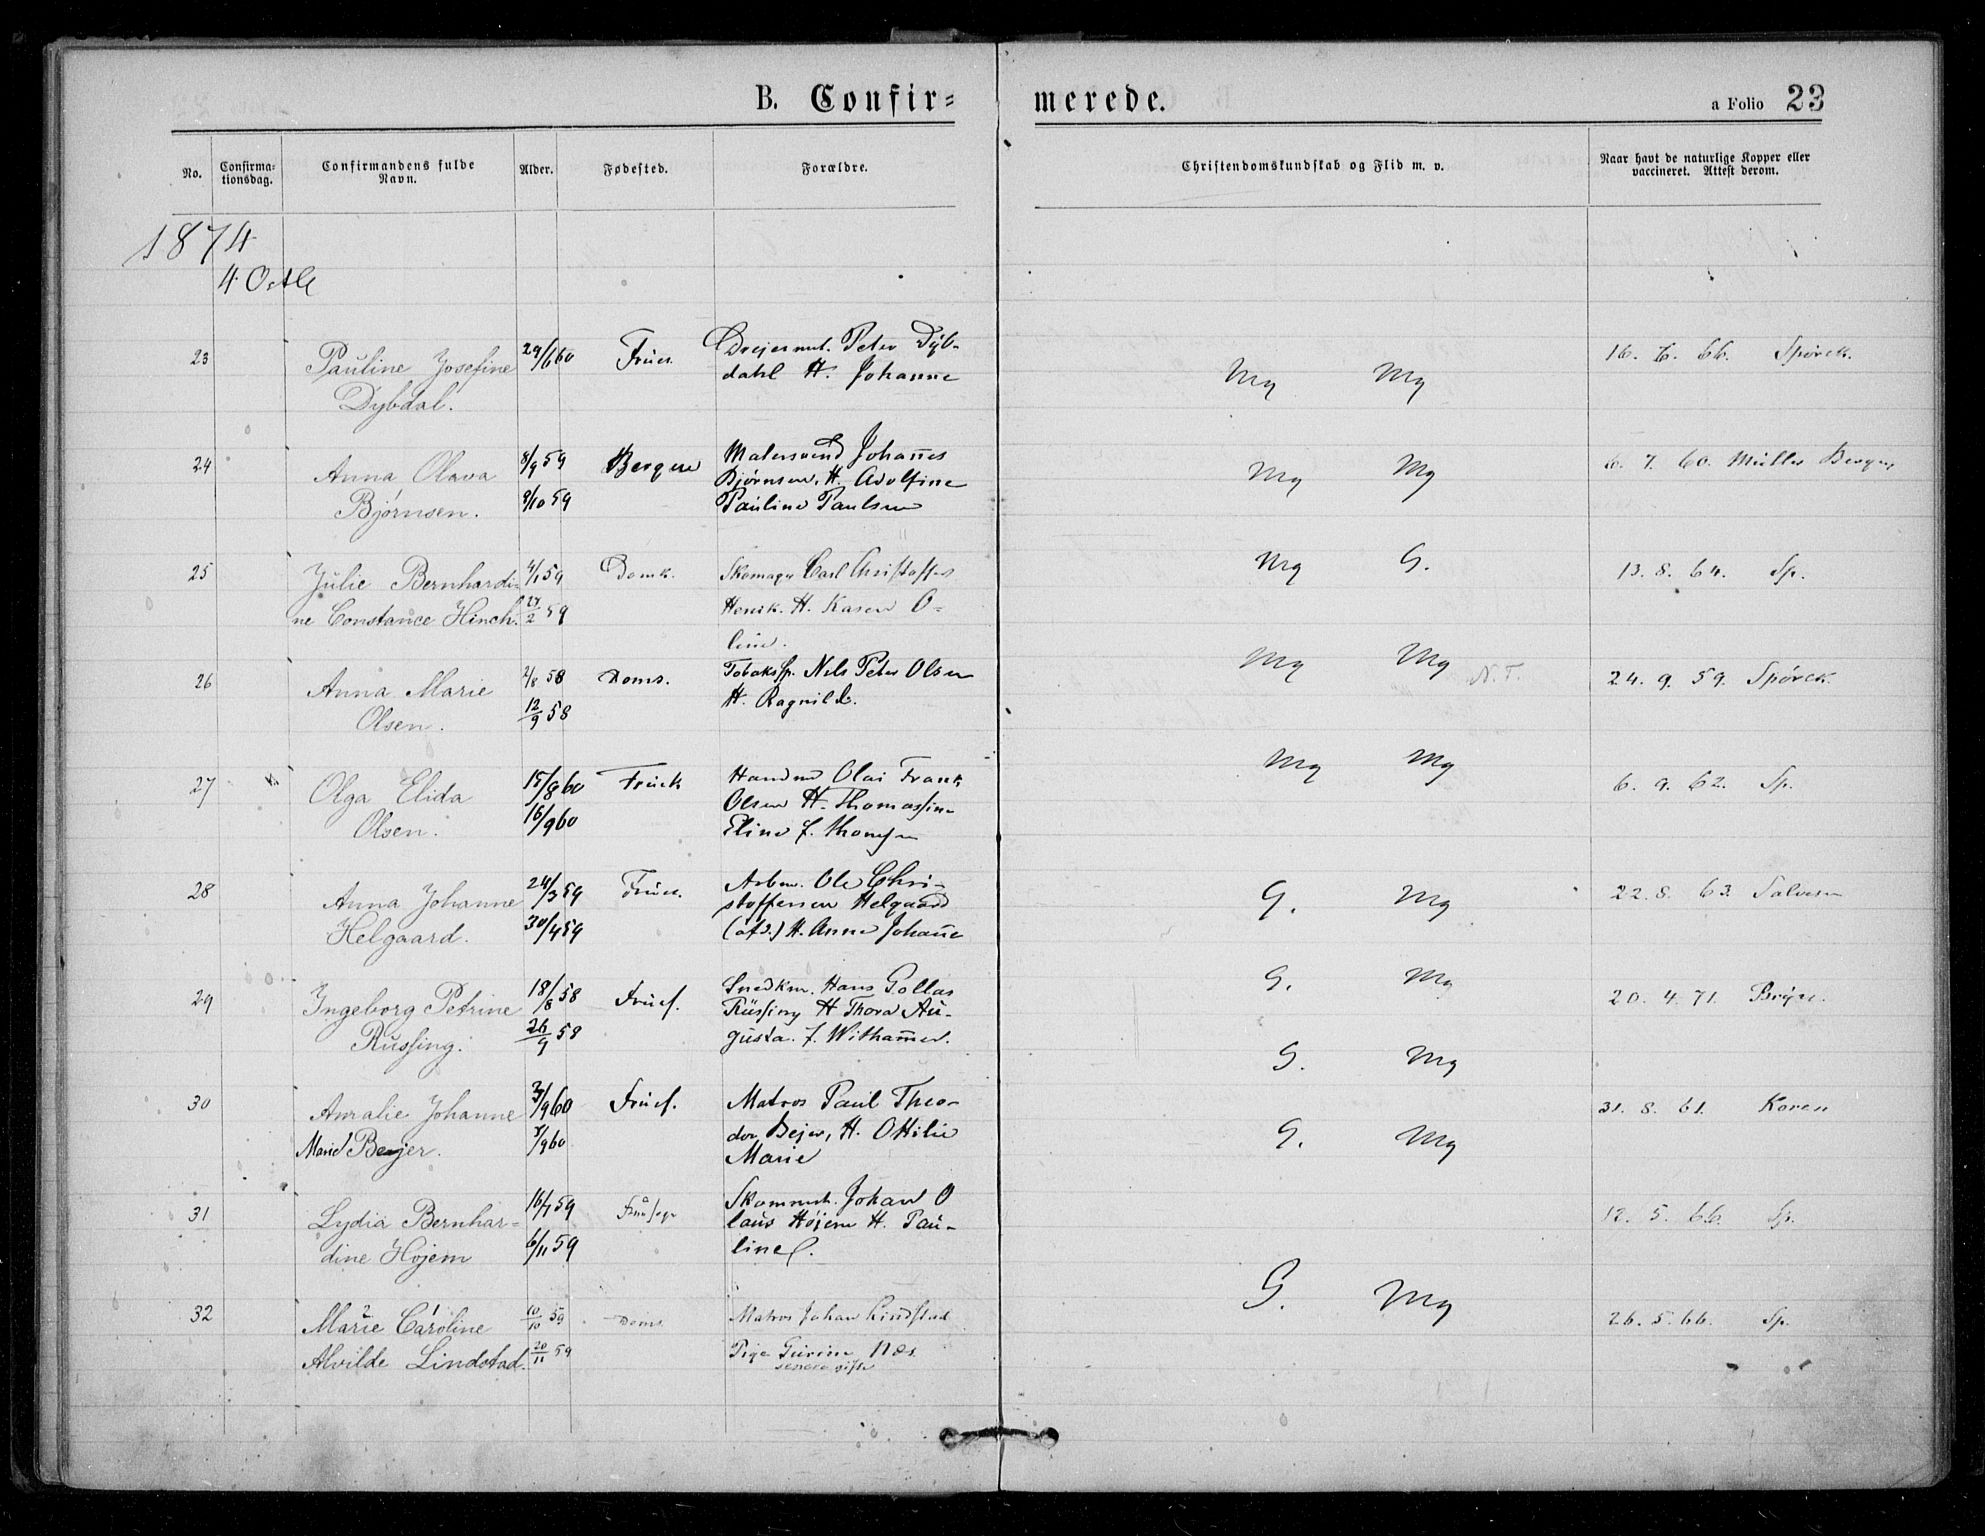 B. Confir= merede. a Folio 23
No. Confirma=tionsdag. Confirmandens fulde Navn. Alder. Fødested. Forældre. Christendomskundskab og Flid m. v. Naar havt de naturlige Kopper eller vaccineret. Attest derom.
1874
4 Octbr
23 Pauline Josefine 29/6 60 Fruek. Drejermst. Peter Dyb-
Dybdal. dahl H. Johanne
Mg Mg 16. 6. 66. Spörck.
24 Anna Olava 8/9 59 Bergen Malersvend Johannes
Bjørnsen. 9/10 59 Bjørnsen, H. Adolfine
Pauline Paulsen
Mg Mg 6. 7. 60. Müller Bergen
25 Julie Bernhardi- 4/1 59 Domk. Skomager Carl Christoffer
ne Constance Hinch. 27/2 59 Henik. H. Karen O-
line.
Mg G. 13. 8. 64. Sp.
26 Anna Marie 2/8 58 Doms. Tobakssp. Nils Peter Olsen
Olsen. 12/9 58 H. Ragnild.
Mg Mg N. T. 24. 9. 59. Spörck.
27 Olga Elida 15/8 60 Fruek Olai Frank
Olsen. 16/9 60 Olsen H. Thomassine
Eline f. Thomsen
Mg Mg 6. 9. 62. Sp.
28 Anna Johanne 24/3 59 Fruek. Arbm. Ole Chri-
Helgaard. 30/4 59 stoffersen Helgaard
(afd.) H. Anne Johanne
G. Mg 22. 8. 63. Salvesen
29 Ingeborg Petrine 18/8 58 Fruef. Snedkm. Hans Gollas
Russing. 26/9 58 Russing H Thora Au-
gusta. f. Withammer.
G. Mg 20. 4. 71. Bryn.
G. Mg
30 Amalie Johanne 3/9 60 Fruef. Matros Paul Theo-
Marie Bejer. /9 60 dor Bejer, H. Ottilie
Marie
G. Mg 31. 8. 61. Koren
31 Lydia Bernhar- 16/7 59 Skommst. Johan O
dine Højem 6/11 59 laus Højem H. Pau-
line
12. 5. 66. Sp.
32 Marie Caroline 10/10 59 Doms Matros Johan Lindstad
2 1
Alvilde Lindstad. 20/11 59 Pige Gurine Næs
senere gift
G. Mg 26. 5. 66. Sp.